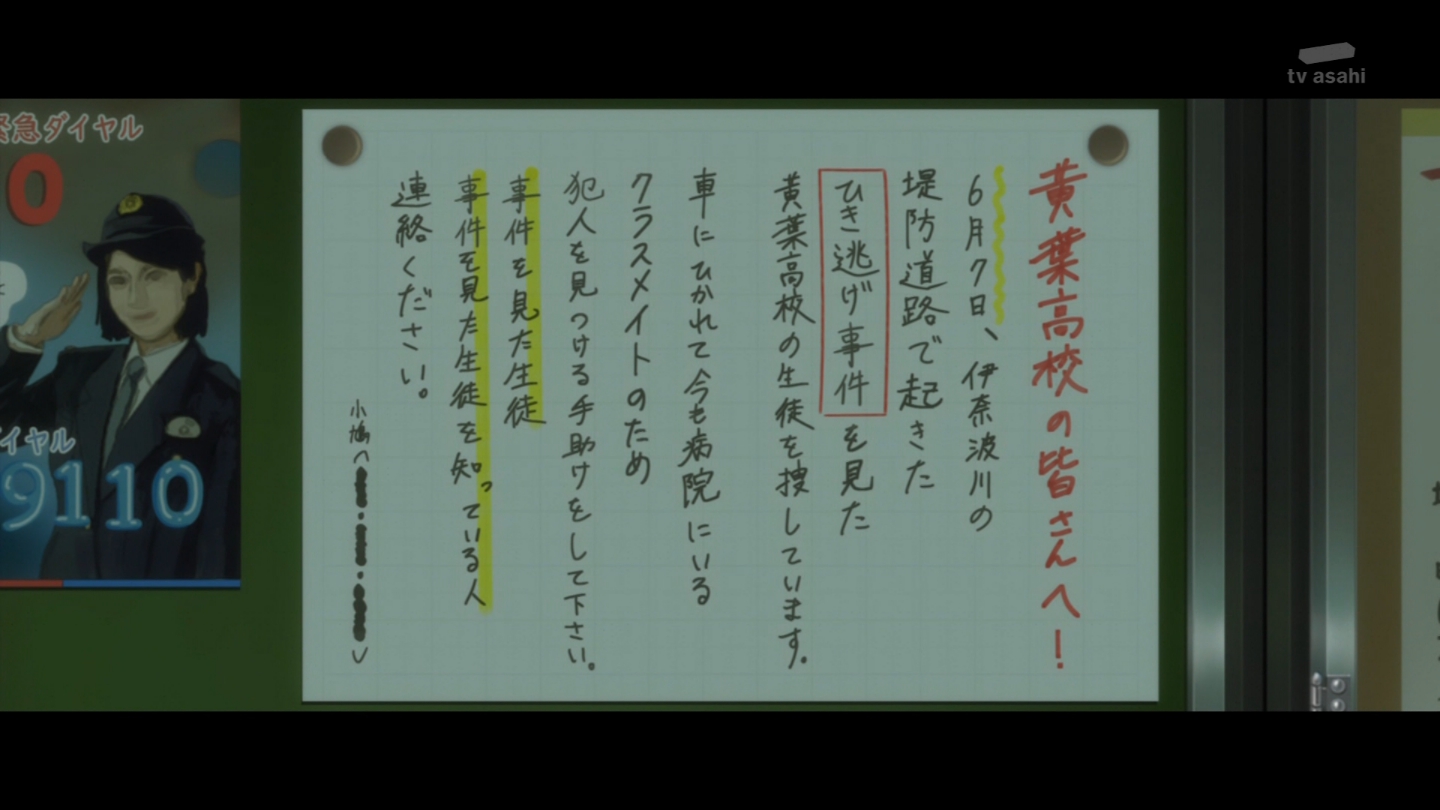 tv asahi
黄葉高校の皆さんへ!
6月7日、伊奈波川の
堤防道路で起きた
ひき逃げ事件を見た
黄葉高校の生徒を捜しています。
車にひかれて今も病院にいる
クラスメイトのため
犯人を見つける手助けをして下さい。
事件を見た生徒
事件を見た生徒を知っている人
連絡ください。
小鳩
緊急ダイヤル
0
イヤル
9110